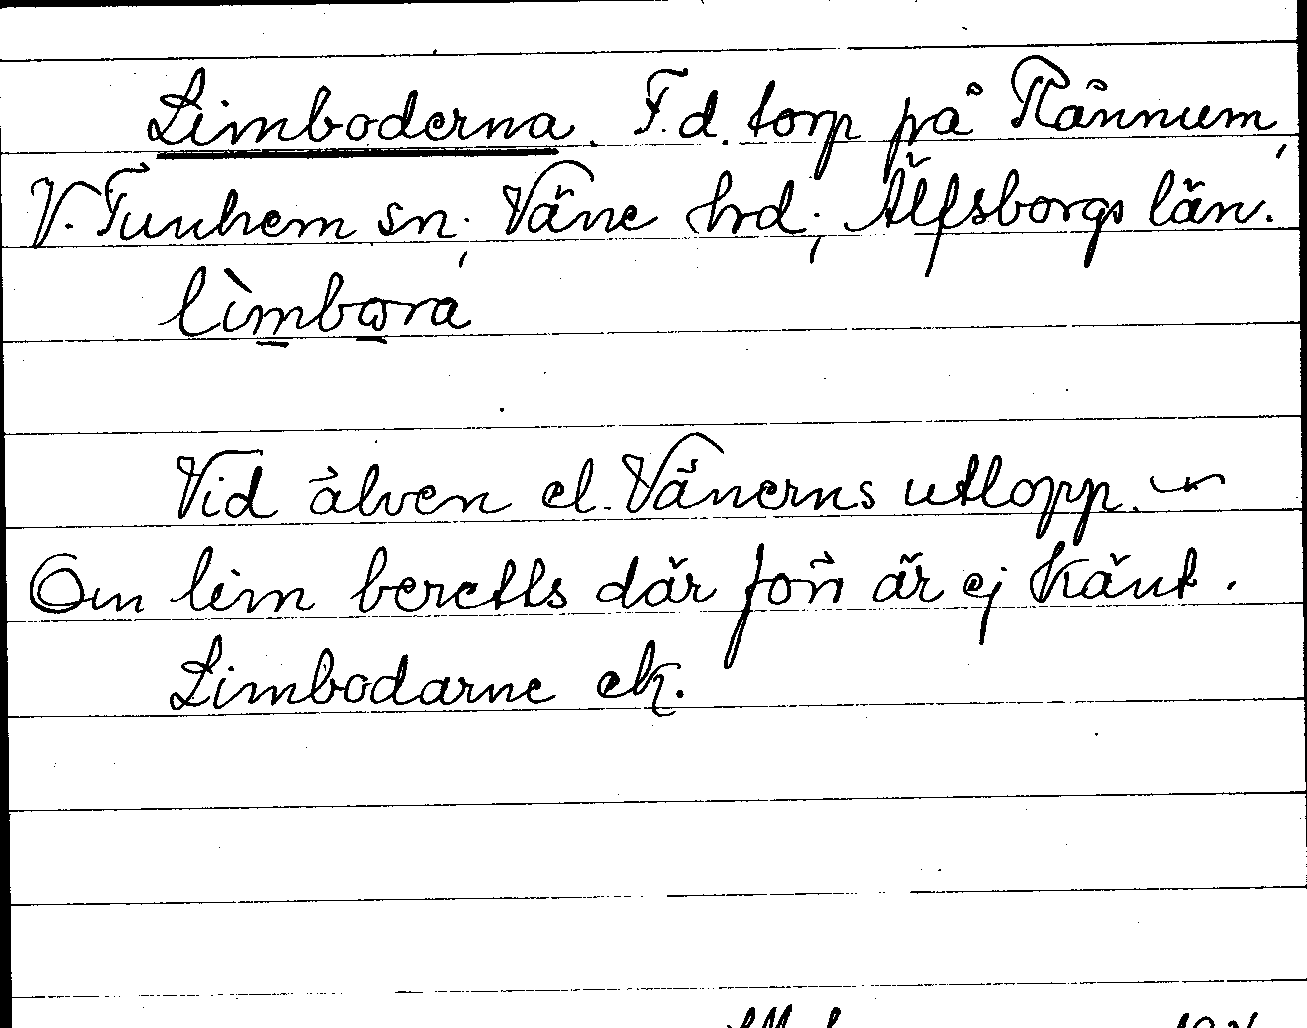 Limboderna. F.d. torp på Rånnum,
V. Tunhem sn; Väne hd; Älfsborgs län.
lìmbora
Vid älven el. Vänerns utlopp. —
Om lim beretts där förr är ej känt.
Limbodarne ek.